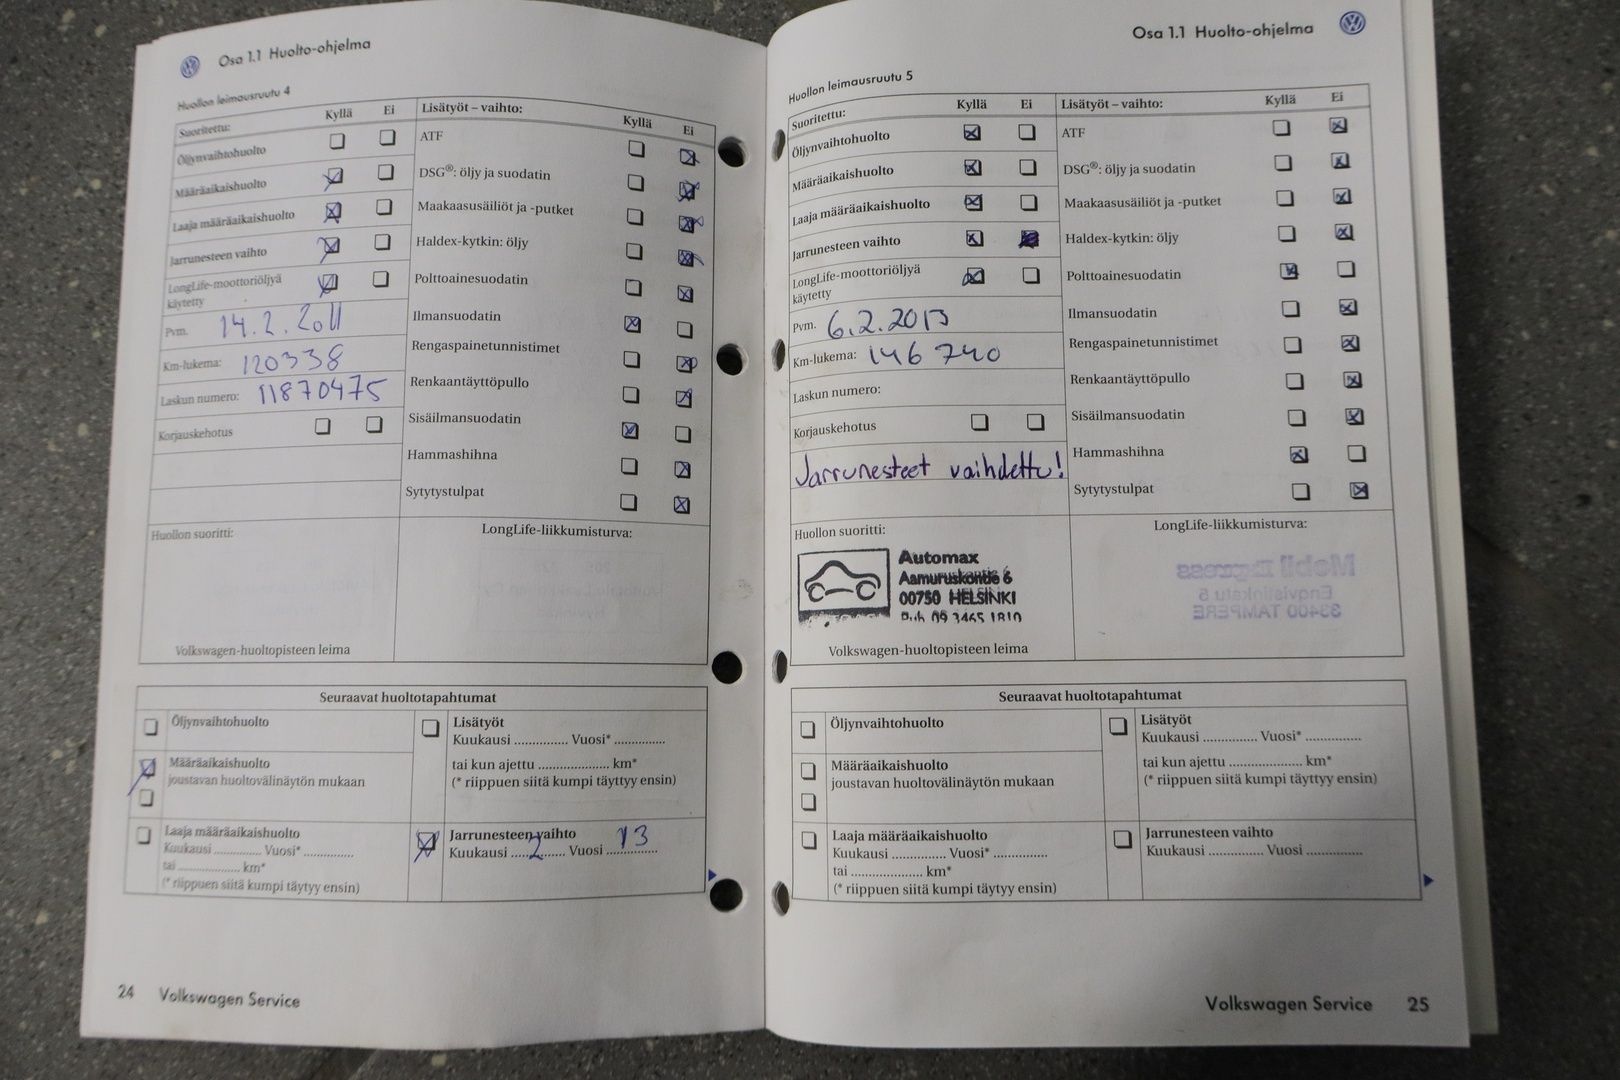 Osa 1.1 Huolto-ohjelma
Huollon leimausruutu 4
Suoritettu: Kyllä Ei
Öljynvaihtohuolto
Määräaikaishuolto
Laaja määräaikaishuolto
Jarrunesteen vaihto
LongLife-moottoriöljyä
käytetty
Pvm. 14.2.2011
Km-lukema: 120338
Laskun numero: 11870475
Korjauskehotus
Lisätyöt – vaihto: Kyllä Ei
ATF
DSG®: öljy ja suodatin
Maakaasusäiliöt ja -putket
Haldex-kytkin: öljy
Polttoainesuodatin
Ilmansuodatin
Rengaspainetunnistimet
Renkaantäyttöpullo
Sisäilmansuodatin
Hammashihna
Sytytystulpat
Huollon suoritti:
Volkswagen-huoltopisteen leima
LongLife-liikkumisturva:
Seuraavat huoltotapahtumat
Öljynvaihtohuolto
Määräaikaishuolto
joustavan huoltovälinäytön mukaan
Laaja määräaikaishuolto
Kuukausi .............. Vuosi* ...............
tai .................... km*
(* riippuen siitä kumpi täytyy ensin)
Lisätyöt
Kuukausi ............... Vuosi* ...............
tai kun ajettu .................... km*
(* riippuen siitä kumpi täyttyy ensin)
Jarrunesteen vaihto
Kuukausi .....2...... Vuosi ...13...
24 Volkswagen Service
Osa 1.1 Huolto-ohjelma
Huollon leimausruutu 5
Suoritettu: Kyllä Ei
Öljynvaihtohuolto
Määräaikaishuolto
Laaja määräaikaishuolto
Jarrunesteen vaihto
LongLife-moottoriöljyä
käytetty
Pvm. 6.2.2013
Km-lukema: 146 740
Laskun numero:
Korjauskehotus
Jarrunesteet vaihdettu!
Lisätyöt – vaihto: Kyllä Ei
ATF
DSG®: öljy ja suodatin
Maakaasusäiliöt ja -putket
Haldex-kytkin: öljy
Polttoainesuodatin
Ilmansuodatin
Rengaspainetunnistimet
Renkaantäyttöpullo
Sisäilmansuodatin
Hammashihna
Sytytystulpat
Huollon suoritti:
Automax
Aamuruskontie 6
00750 HELSINKI
Puh 09 3465 1810
Volkswagen-huoltopisteen leima
LongLife-liikkumisturva:
Seuraavat huoltotapahtumat
Öljynvaihtohuolto
Määräaikaishuolto
joustavan huoltovälinäytön mukaan
Laaja määräaikaishuolto
Kuukausi ............... Vuosi* ...............
tai .................... km*
(* riippuen siitä kumpi täytyy ensin)
Lisätyöt
Kuukausi ............... Vuosi* ...............
tai kun ajettu .................... km*
(* riippuen siitä kumpi täyttyy ensin)
Jarrunesteen vaihto
Kuukausi ............... Vuosi ...............
Volkswagen Service 25